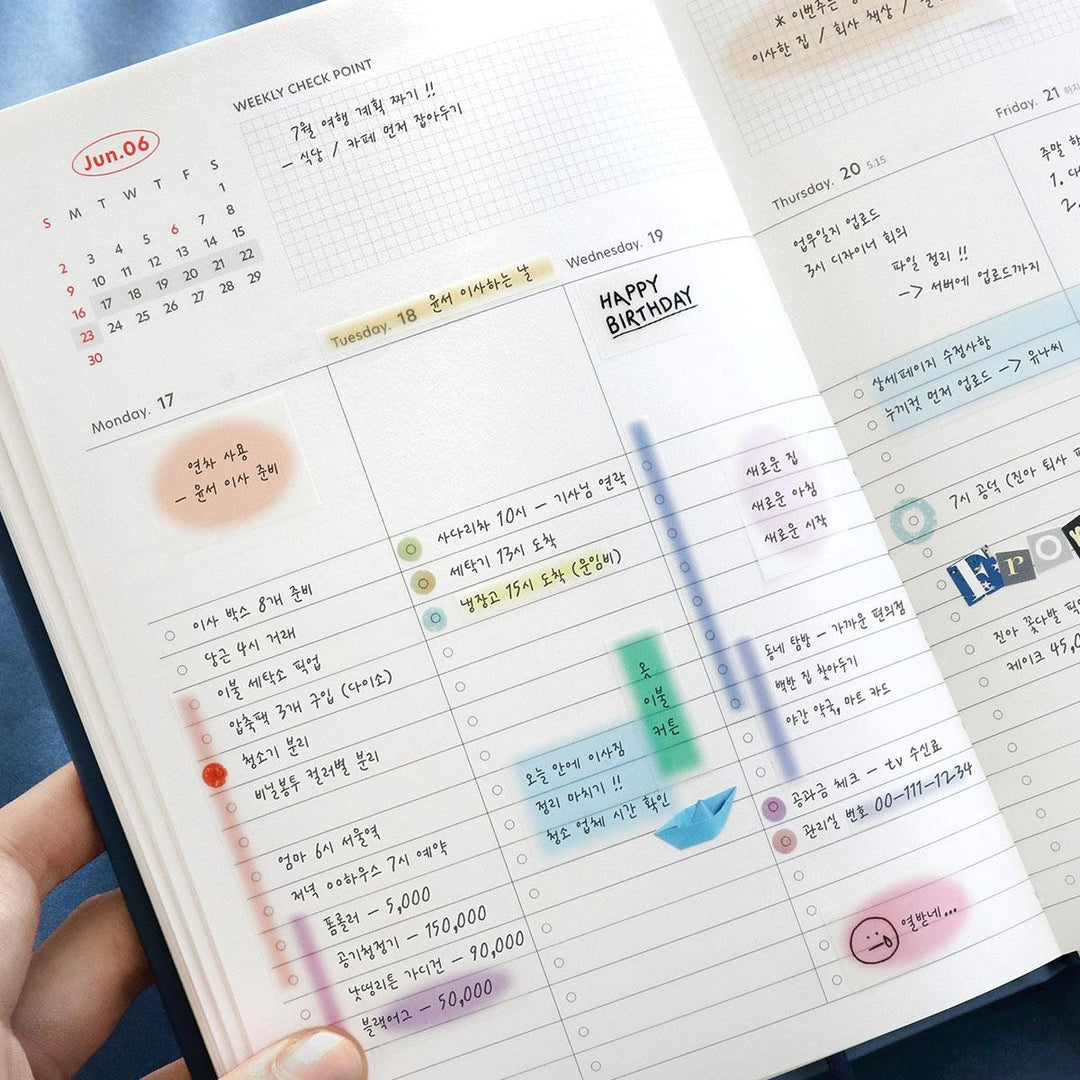 WEEKLY CHECK POINT
7월 여행 계획 짜기 !!
– 식당 / 카페 먼저 잡아두기
Jun.06
S M T W T F S
1
2 3 4 5 6 7 8
9 10 11 12 13 14 15
16 17 18 19 20 21 22
23 24 25 26 27 28 29
30
Monday. 17
연차 사용
– 윤서 이사 준비
이사 박스 8개 준비
당근 4시 거래
이불 세탁소 픽업
압축팩 3개 구입 (다이소)
청소기 분리
비닐봉투 컬러별 분리
엄마 6시 서울역
저녁 ㅇㅇ하우스 7시 예약
폼롤러 – 5,000
공기청정기 – 150,000
낫띵리튼 가디건 – 90,000
블랙어그 – 50,000
Tuesday. 18 윤서 이사하는 날
사다리차 10시 – 기사님 연락
세탁기 13시 도착
냉장고 15시 도착 (운임비)
옷
이불
커튼
오늘 안에 이사짐
정리 마치기 !!
청소 업체 시간 확인
Wednesday. 19
HAPPY
BIRTHDAY
새로운 집
새로운 아침
새로운 시작
동네 탐방 – 가까운 편의점
백반 집 찾아두기
야간 약국, 마트 카드
공과금 체크 – tv 수신료
관리실 번호 00-111-1234
열받네...
* 이번주는
이사한 집 / 회사 책상 /
Thursday. 20 5.15
업무일지 업로드
3시 디자이너 회의
파일 정리 !!
–> 서버에 업로드까지
상세페이지 수정사항
누끼컷 먼저 업로드 –> 유나씨
7시 공덕 (진아 퇴사
진아 꽃다발
케이크
Friday. 21
주말
1.
2.